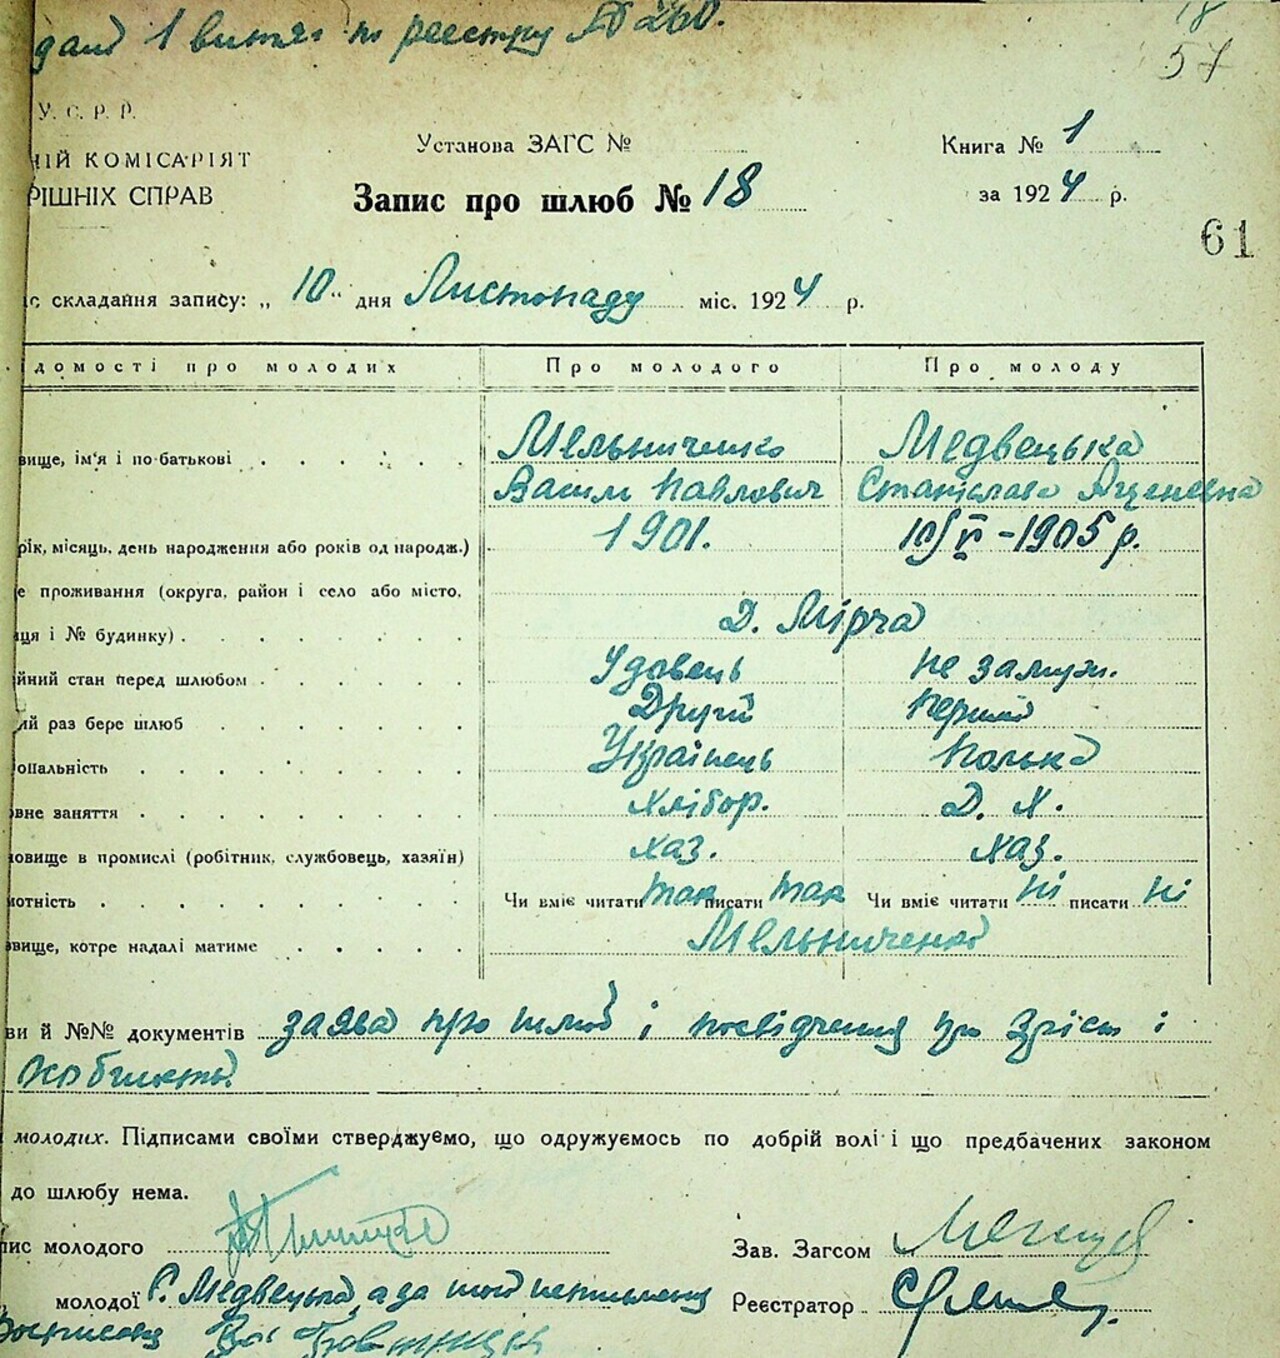 1 витяг по реестру № 260.
57
У. С. Р. Р.
НІЙ КОМІСАРІЯТ
РІШНІХ СПРАВ
Установа ЗАГС №
Книга № 1
Запис про шлюб № 18
за 1924 р.
61
с складання запису: „ 10 " дня Листопаду міс. 1924 р.
домості про молодих Про молодого Про молоду
вище, ім'я і по-батькові Мельниченко Медвецька
Василь Павлович Станіслава
рік, місяць, день народження або років од народж.) 1901. 10/V - 1905 р.
е проживання (округа, район і село або місто,
ця і № будинку) Д. Мірча
йний стан перед шлюбом Удовець не замужн.
ий раз бере шлюб Другий перший
ональність Українець полька
вне заняття хлібор. Д. Х.
овище в промислі (робітник, службовець, хазяїн) хаз. хаз.
отність Чи вміє читати так писати так Чи вміє читати ні писати ні
звище, котре надалі матиме Мельниченко
ви й №№ документів заява про шлюб і посвідчення про зріст і
молодих. Підписами своїми стверджуємо, що одружуємось по добрій волі і що предбачених законом
до шлюбу нема.
пис молодого
Зав. Загсом
молодої Медвецька, а за
Реєстратор